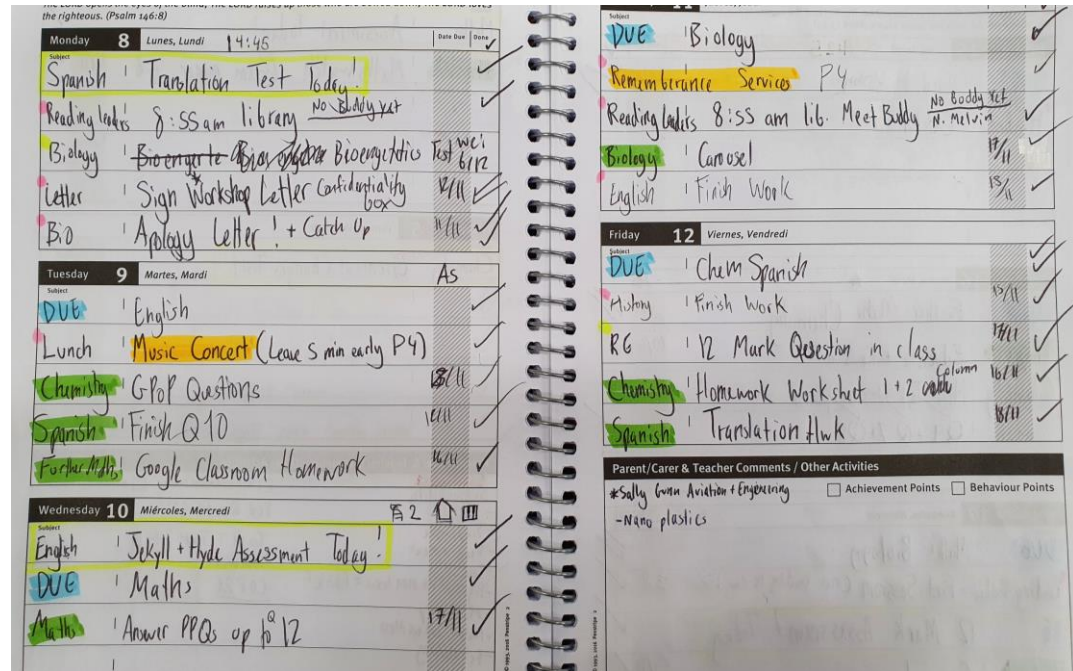 the righteous. (Psalm 146:8)
Monday 8 Lunes, Lundi 14:45 Date Due Done
Subject
Spanish Translation Test Today!
Reading leaders 8:55am library No Buddy Yet
Biology Bioenergetics Test WC: 6/12
Letter Sign Workshop Letter Confidentiality box 12/11
Bio Apology Letter! + Catch Up 11/11
Tuesday 9 Martes, Mardi As
Subject
DUE English
Lunch Music Concert (Leave 5 min early P4)
Chemistry GPoP Questions /11
Spanish Finish Q10 12/11
Further Maths Google Classroom Homework 16/11
Wednesday 10 Miércoles, Mercredi 2
Subject
English Jekyll + Hyde Assessment Today!
DUE Maths
Maths Answer PPQs up to Q 12 17/11
Subject
DUE Biology
Rememberance Services P4
Reading Leaders 8:55 am lib. Meet Buddy No Buddy Yet N. Melvin
Biology Carousel 17/11
English Finish Work 18/11
Friday 12 Viernes, Vendredi
Subject
DUE Chem Spanish
History Finish Work 15/11
RE 12 Mark Qesestion in class 17/11
Chemistry Homework Worksheet 1+2 Column 16/11
Spanish Translation Hwk 18/11
Parent/Carer & Teacher Comments / Other Activities
*Sally Aviation + Engeneering Achievement Points Behaviour Points
-Nano plastics